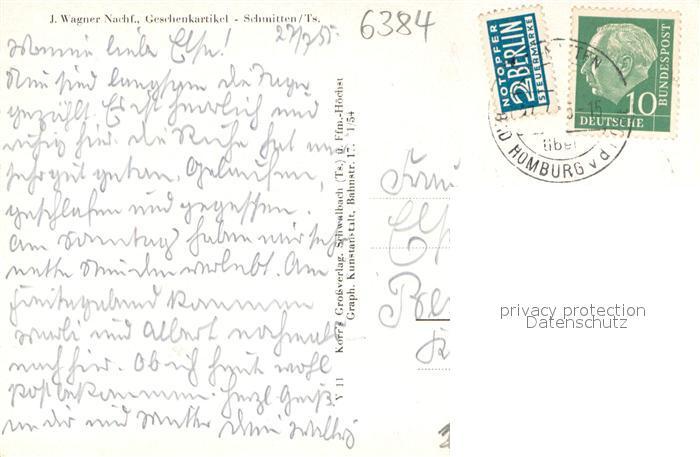 J. Wagner Nachf., Geschenkartikel - Schmitten/Ts.
6384
27/7 55.
Meine liebe Else!
Nun sind langsam die Tage
gezählt. Es ist herrlich und
ruhig hier. Die Ruhe hat uns
sehr gut getan. Gelaufen,
geschlafen und gegessen.
Am Sonntag haben wir sehr
nette Stunden verlebt. Am
Freitagabend kommen
und Albert nochmals
nach hier. Ob ich heute wohl
Post bekomme. Herzl. Grüße
an dich und Mutter dein
V 11 Korr's Großverlag, Schwalbach (Ts.) ü. Ffm.-Höchst
Graph. Kunstanstalt, Bahnstr. 17. 1/54
NOTOPFER
2 BERLIN
STEUERMARKE
10
DEUTSCHE
BUNDESPOST
über
BAD HOMBURG v.d.
Frau
Else
privacy protection
Datenschutz